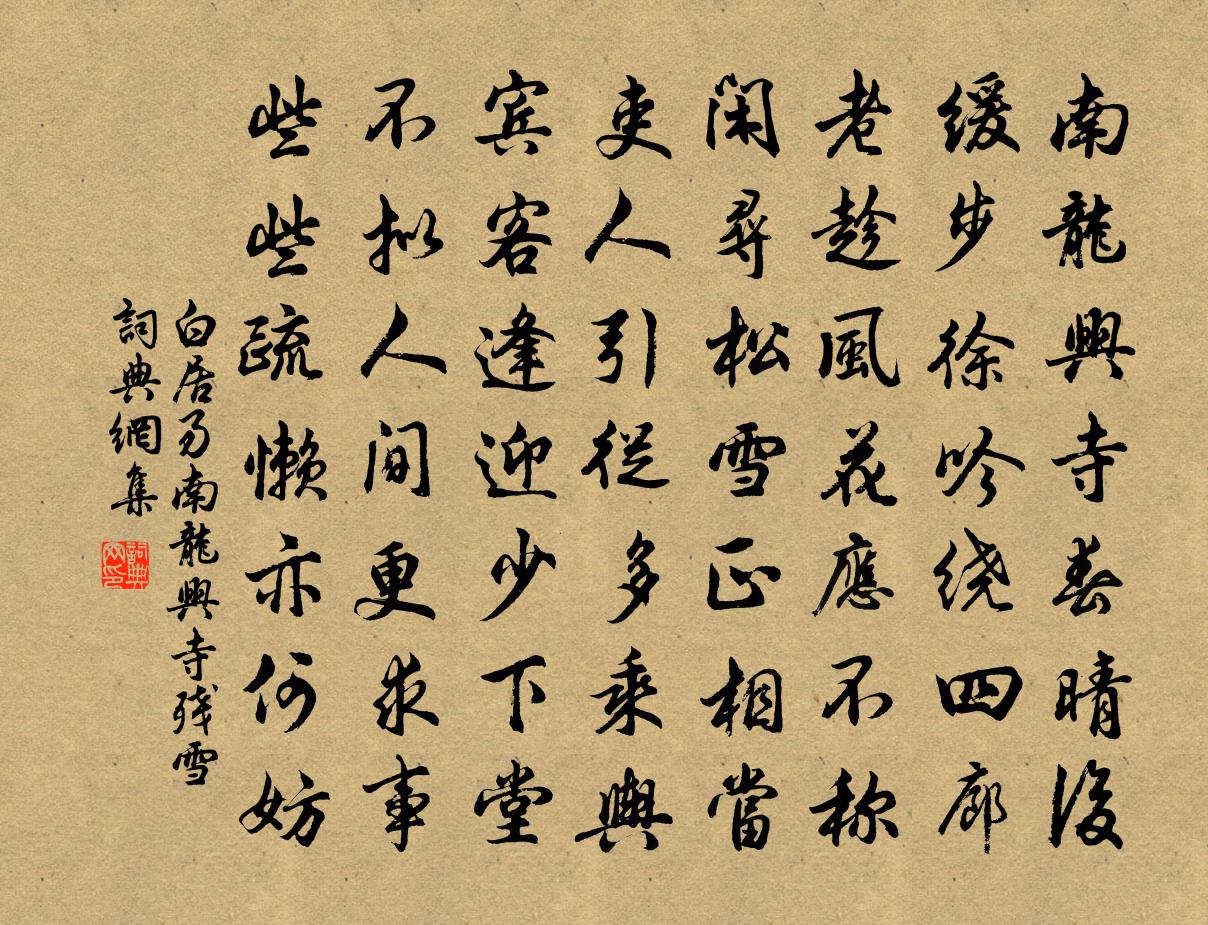 南龍興寺春晴後
緩步徐吟繞四廊
老趁風花應不称
閑尋松雪正相當
吏人引從多乘輿
賓客逢迎少下堂
不拟人間更求事
些些疏懶亦何妨
白居易南龍興寺残雪
詞典網集
詞典网印